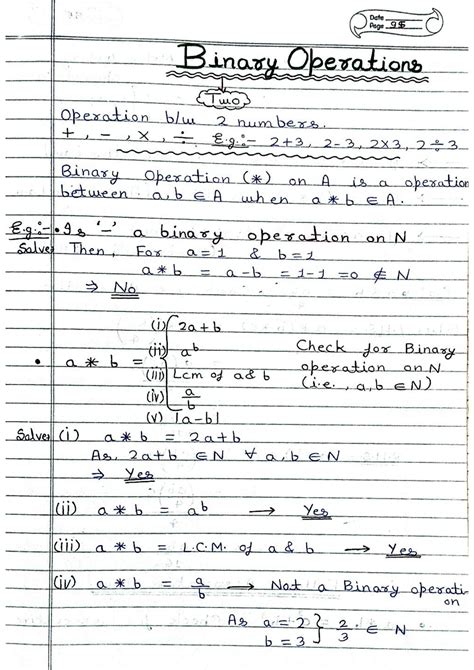 Date
Page 95
Binary Operations
Two
Operation b/w 2 numbers.
+, -, ×, ÷ E.g:- 2+3, 2-3, 2×3, 2÷3
Binary Operation (*) on A is a operation
between a,b ∈ A when a * b ∈ A.
E.g:- • Is '-' a binary operation on N
Solve) Then, For a=1 & b=1
a * b = a-b = 1-1 =0 ∉ N
⇒ No
• a * b =
(i) 2a+b
(ii) aᵇ
(iii) Lcm of a & b
(iv) a/b
(v) |a-b|
Check for Binary
operation on N
(i.e., a,b ∈ N)
Solve) (i) a * b = 2a+b
As, 2a+b ∈ N ∀ a,b ∈ N
⇒ Yes
(ii) a * b = aᵇ → Yes
(iii) a * b = L.C.M. of a & b → Yes
(iv) a * b = a/b → Not a Binary operati-
on
As a = 2
b = 3 } 2/3 ∈ N